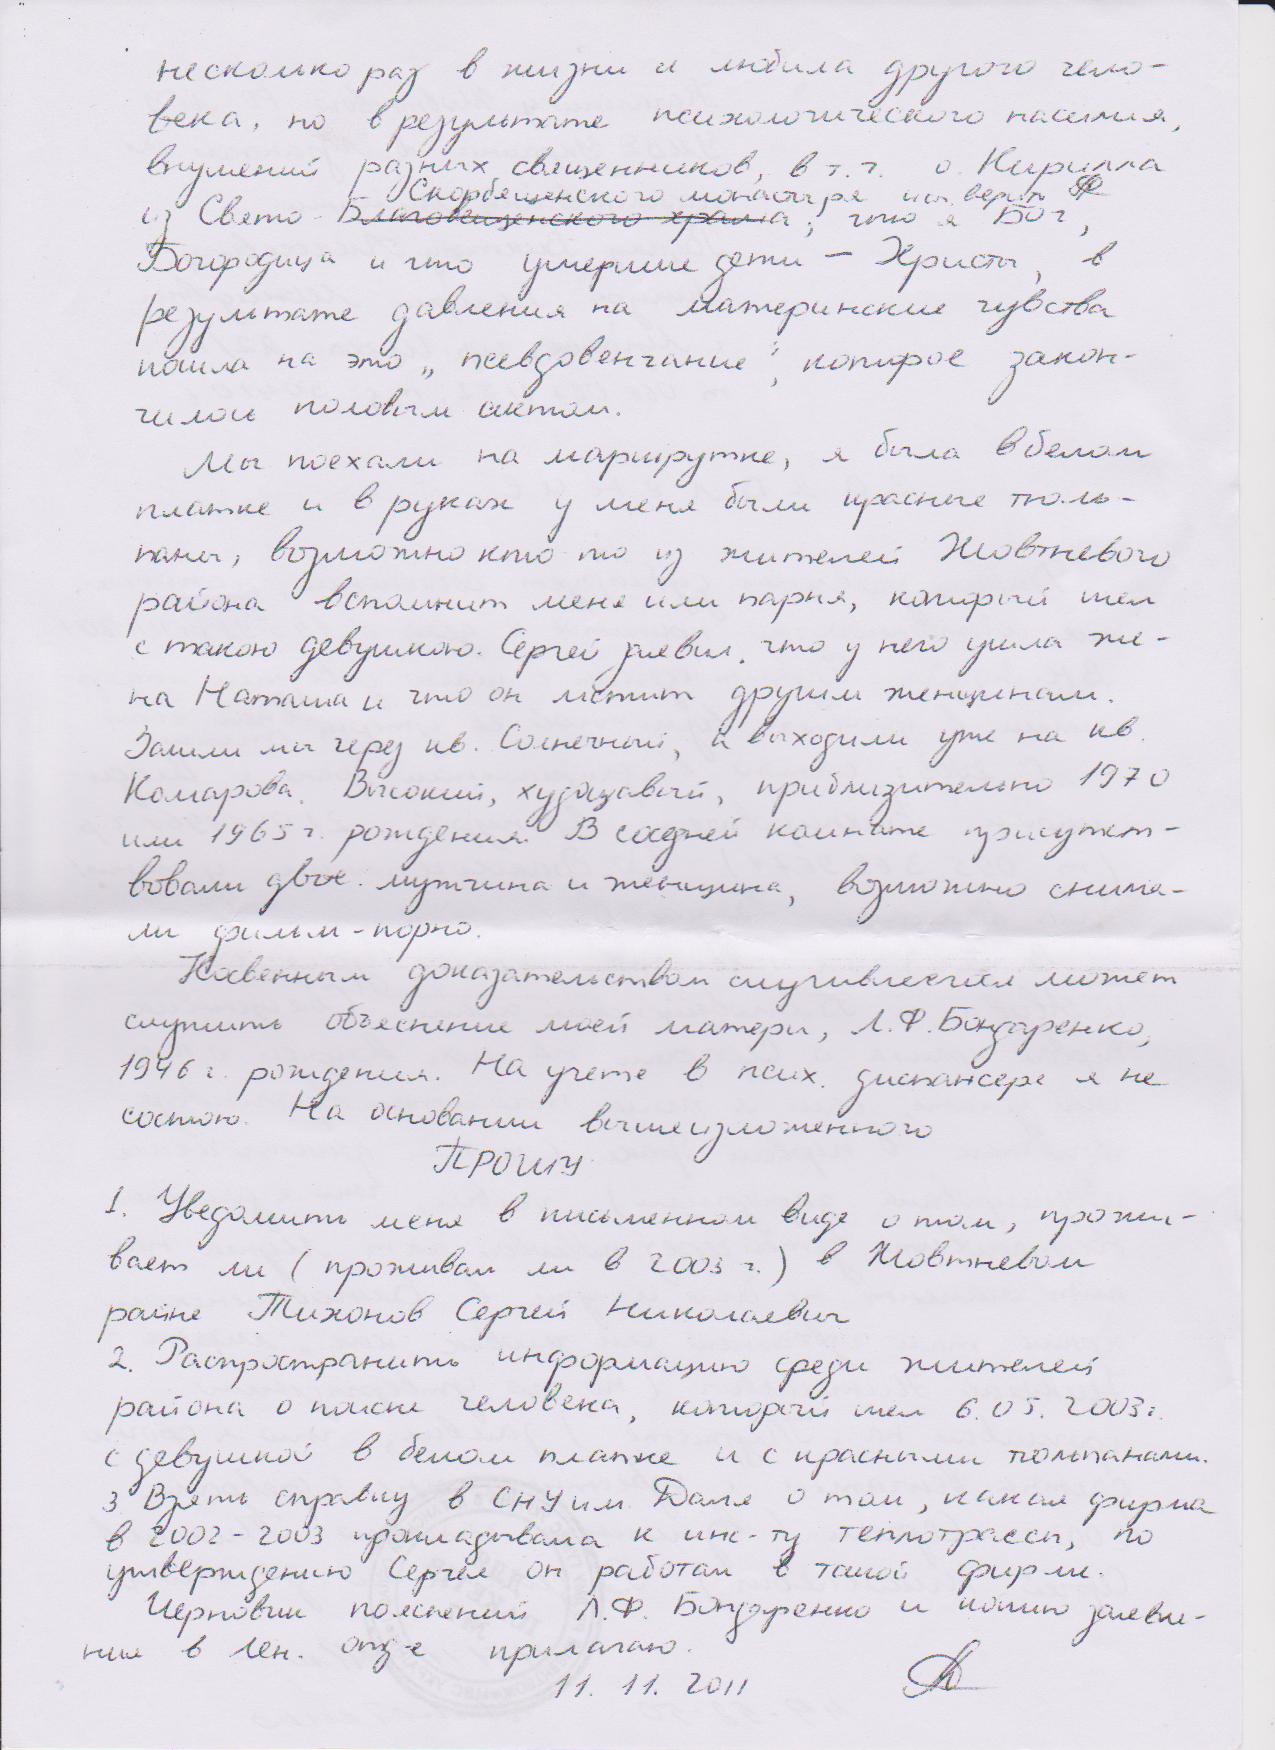 несколько раз в жизни и любила другого чело-
века, но в результате психологического насилия,
внушений разных священников, в т.ч. о. Кирилла
Скорбященского монастыря
из Свято-Благовещенского храма, что я Бог,
Богородица и что умершие дети – Христы, в
результате давления на материнские чувства
пошла на это „псевдовенчание", которое закон-
чилось половым актом.
Мы поехали на маршрутке, я была в белом
платке и в руках у меня были красные тюль-
паны, возможно кто то из жителей Жовтневого
района вспомнит меня или парня, который шел
с такою девушкою. Сергей заявил, что у него ушла же-
на Наташа и что он мстит другим женщинам.
Зашли мы через кв. Солнечный, а выходили уже на кв.
Комарова. Высокий, худощавый, приблизительно 1970
или 1965 г. рождения. В соседней комнате присутст-
вовали двое. мужчина и женщина, возможно снима-
ли фильм-порно.
Косвенным доказательством случившегося может
служить объяснение моей матери, Л.Ф. Бондаренко,
1946 г. рождения. На учете в псих. диспансере я не
состою. На основании вышеизложенного
ПРОШУ
1. Уведомить меня в письменном виде о том, прожи-
вает ли (проживал ли в 2003 г.) в Жовтневом
районе Тихонов Сергей Николаевич
2. Распространить информацию среди жителей
района о поиске человека, который шел 6.05.2003г.
с девушкой в белом платке и с красными тюльпанами.
3 Взять справку в СНУ им. Даля о том, какая фирма
в 2002-2003 прокладывала к ин-ту теплотрассы, по
утверждению Сергея он работал в такой фирме.
Черновик пояснений Л.Ф. Бондаренко и копию заявле-
ния в Лен. отд-е прилагаю.
11. 11. 2011